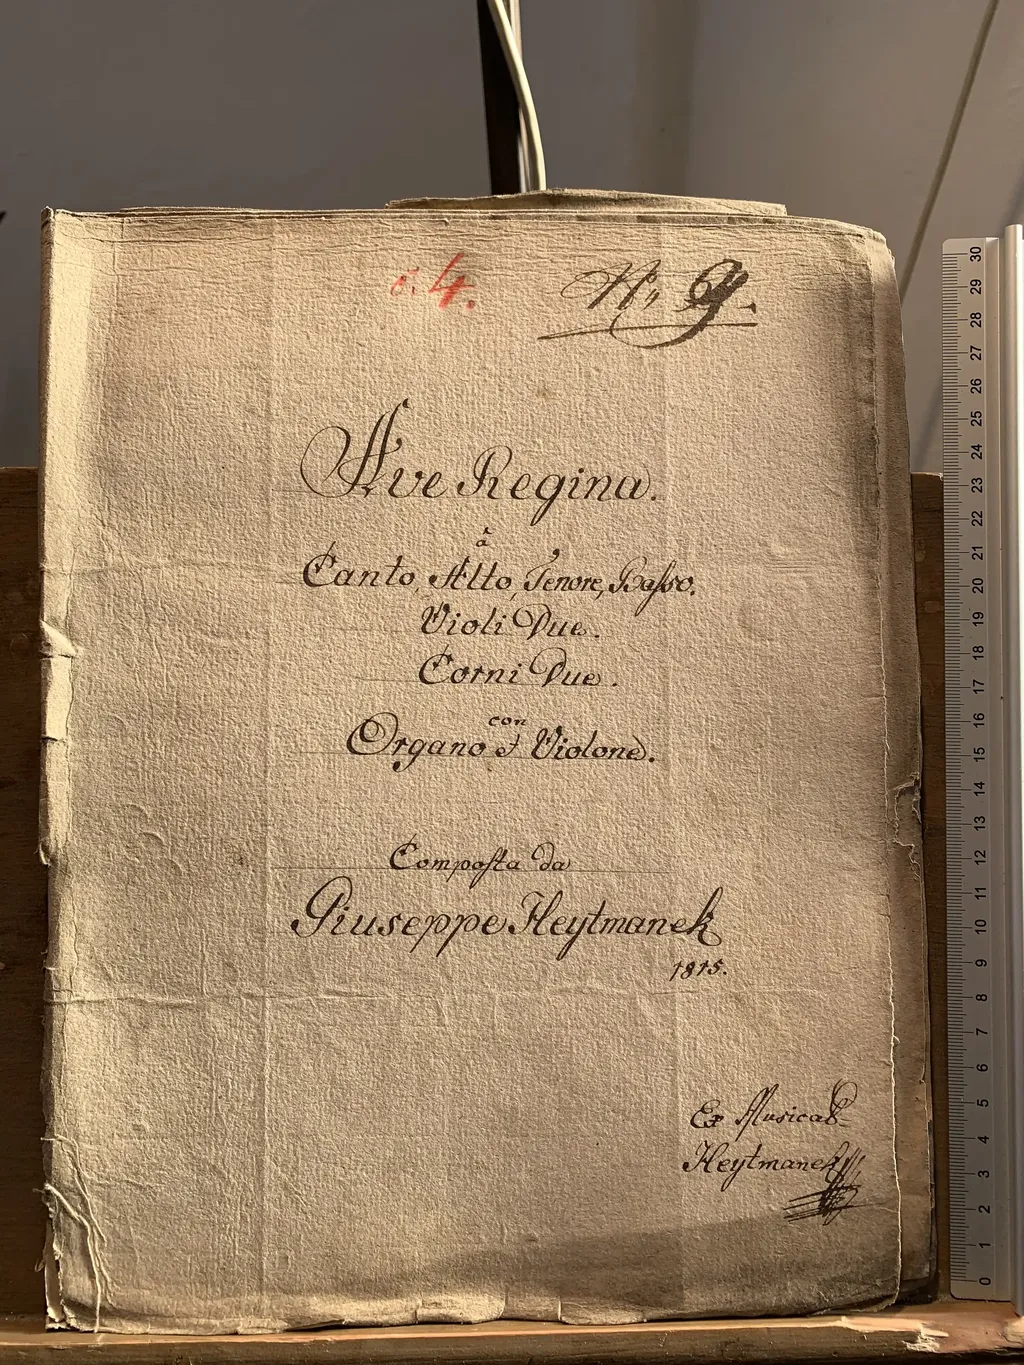 č. 4.
N: 9.
Ave Regina.
à
Canto, Alto, Tenore, Basso.
Violi Due.
Corni Due.
con
Organo et Violone.
Composta da
Giuseppe Heytmanek
1815.
Ex Musical
Heytmanek
30
29
28
27
26
25
24
23
22
21
20
19
18
17
16
15
14
13
12
11
10
9
8
7
6
5
4
3
2
1
0